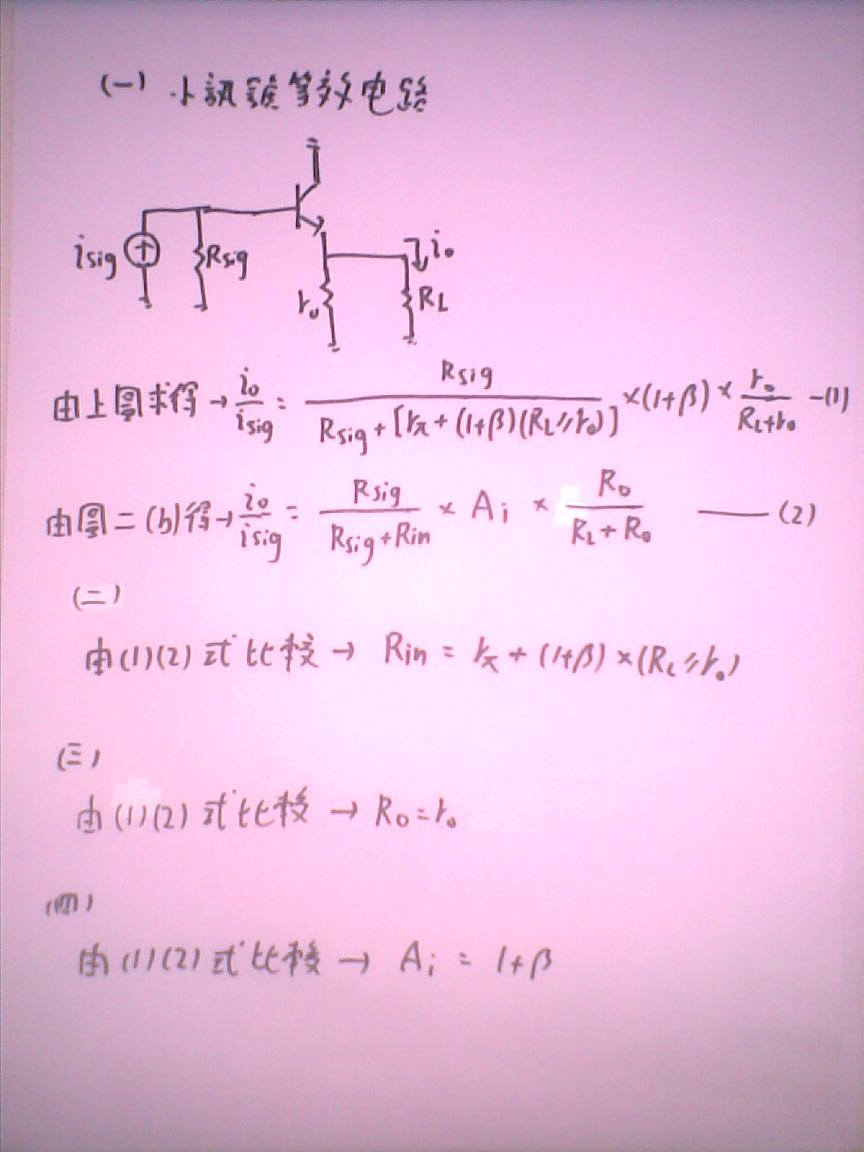 (一) 小訊號等效电路
isig Rsig ro io RL
由上圖求得→ io/isig = Rsig/(Rsig+[rπ+(1+β)(RL//ro)]) ×(1+β)× ro/(RL+ro) -(1)
由圖二(b)得→ io/isig = Rsig/(Rsig+Rin) × Ai × Ro/(RL+Ro) —(2)
(二)
由(1)(2)式比较→ Rin = rπ+(1+β)×(RL//ro)
(三)
由(1)(2)式比较→ Ro=ro
(四)
由(1)(2)式比较→ Ai = 1+β